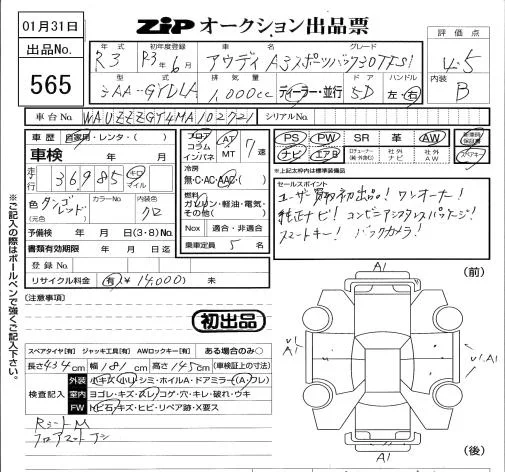 01月31日
ZIPオークション出品票
評価点
4.5
内装
B
出品No.
565
年式 初年度登録 車名 グレード
R3 R3年6月 アウディ A3スポーツバック30TFSI
型式 排気量 ドア ハンドル
3AA-GYDLA 1,000cc ディーラー・並行 5D 左・右
車台No. WAUZZZGY4MA102721 シリアルNo.
車歴 自家用・レンタ・( )
車検 年 月
走行 36,985 キロ マイル
色 タンゴレッド (元色) カラーNo. 内装色 クロ
予備検 年 月 日(3・8)No.
書類有効期限 年 月 日迄
登録No.
リサイクル料金 有 ¥14,000 未
フロア コラム インパネ AT MT 7速
冷房
無・C・AC・AAC・( )
燃料
ガソリン・軽油・電気・その他( )
Nox 適合・非適合
乗車定員 5 名
PS PW SR 革 AW
ナビ エアB 社外ナビ 社外AW
新車時保証書
スペアキー
*上記太枠内は標準装備品
セールスポイント
ユーザー買取初出品! ワンオーナー!
純正ナビ! コンビニアシスタンスパッケージ!
スマートキー! バックカメラ!
(注意事項)
初出品
スペアタイヤ[有] ジャッキ工具[有] AWロックキー[有] ある場合のみ○
長さ434cm 幅181cm 高さ145cm (車検証の寸法)
検査記入
外装 小キズ・小U・シミ・ホイルA・ドアミラー(A・ワレ)
室内 ヨゴレ・キズ・スレ・コゲ・穴・キレ・ワレ・ウキ
FW トビ石・キズ・ヒビ・リペア跡・X要ス
RシートM
A1
(前)
A1
U1.A1
A1
(後)
ご記入の際はボールペンで強くご記入下さい。